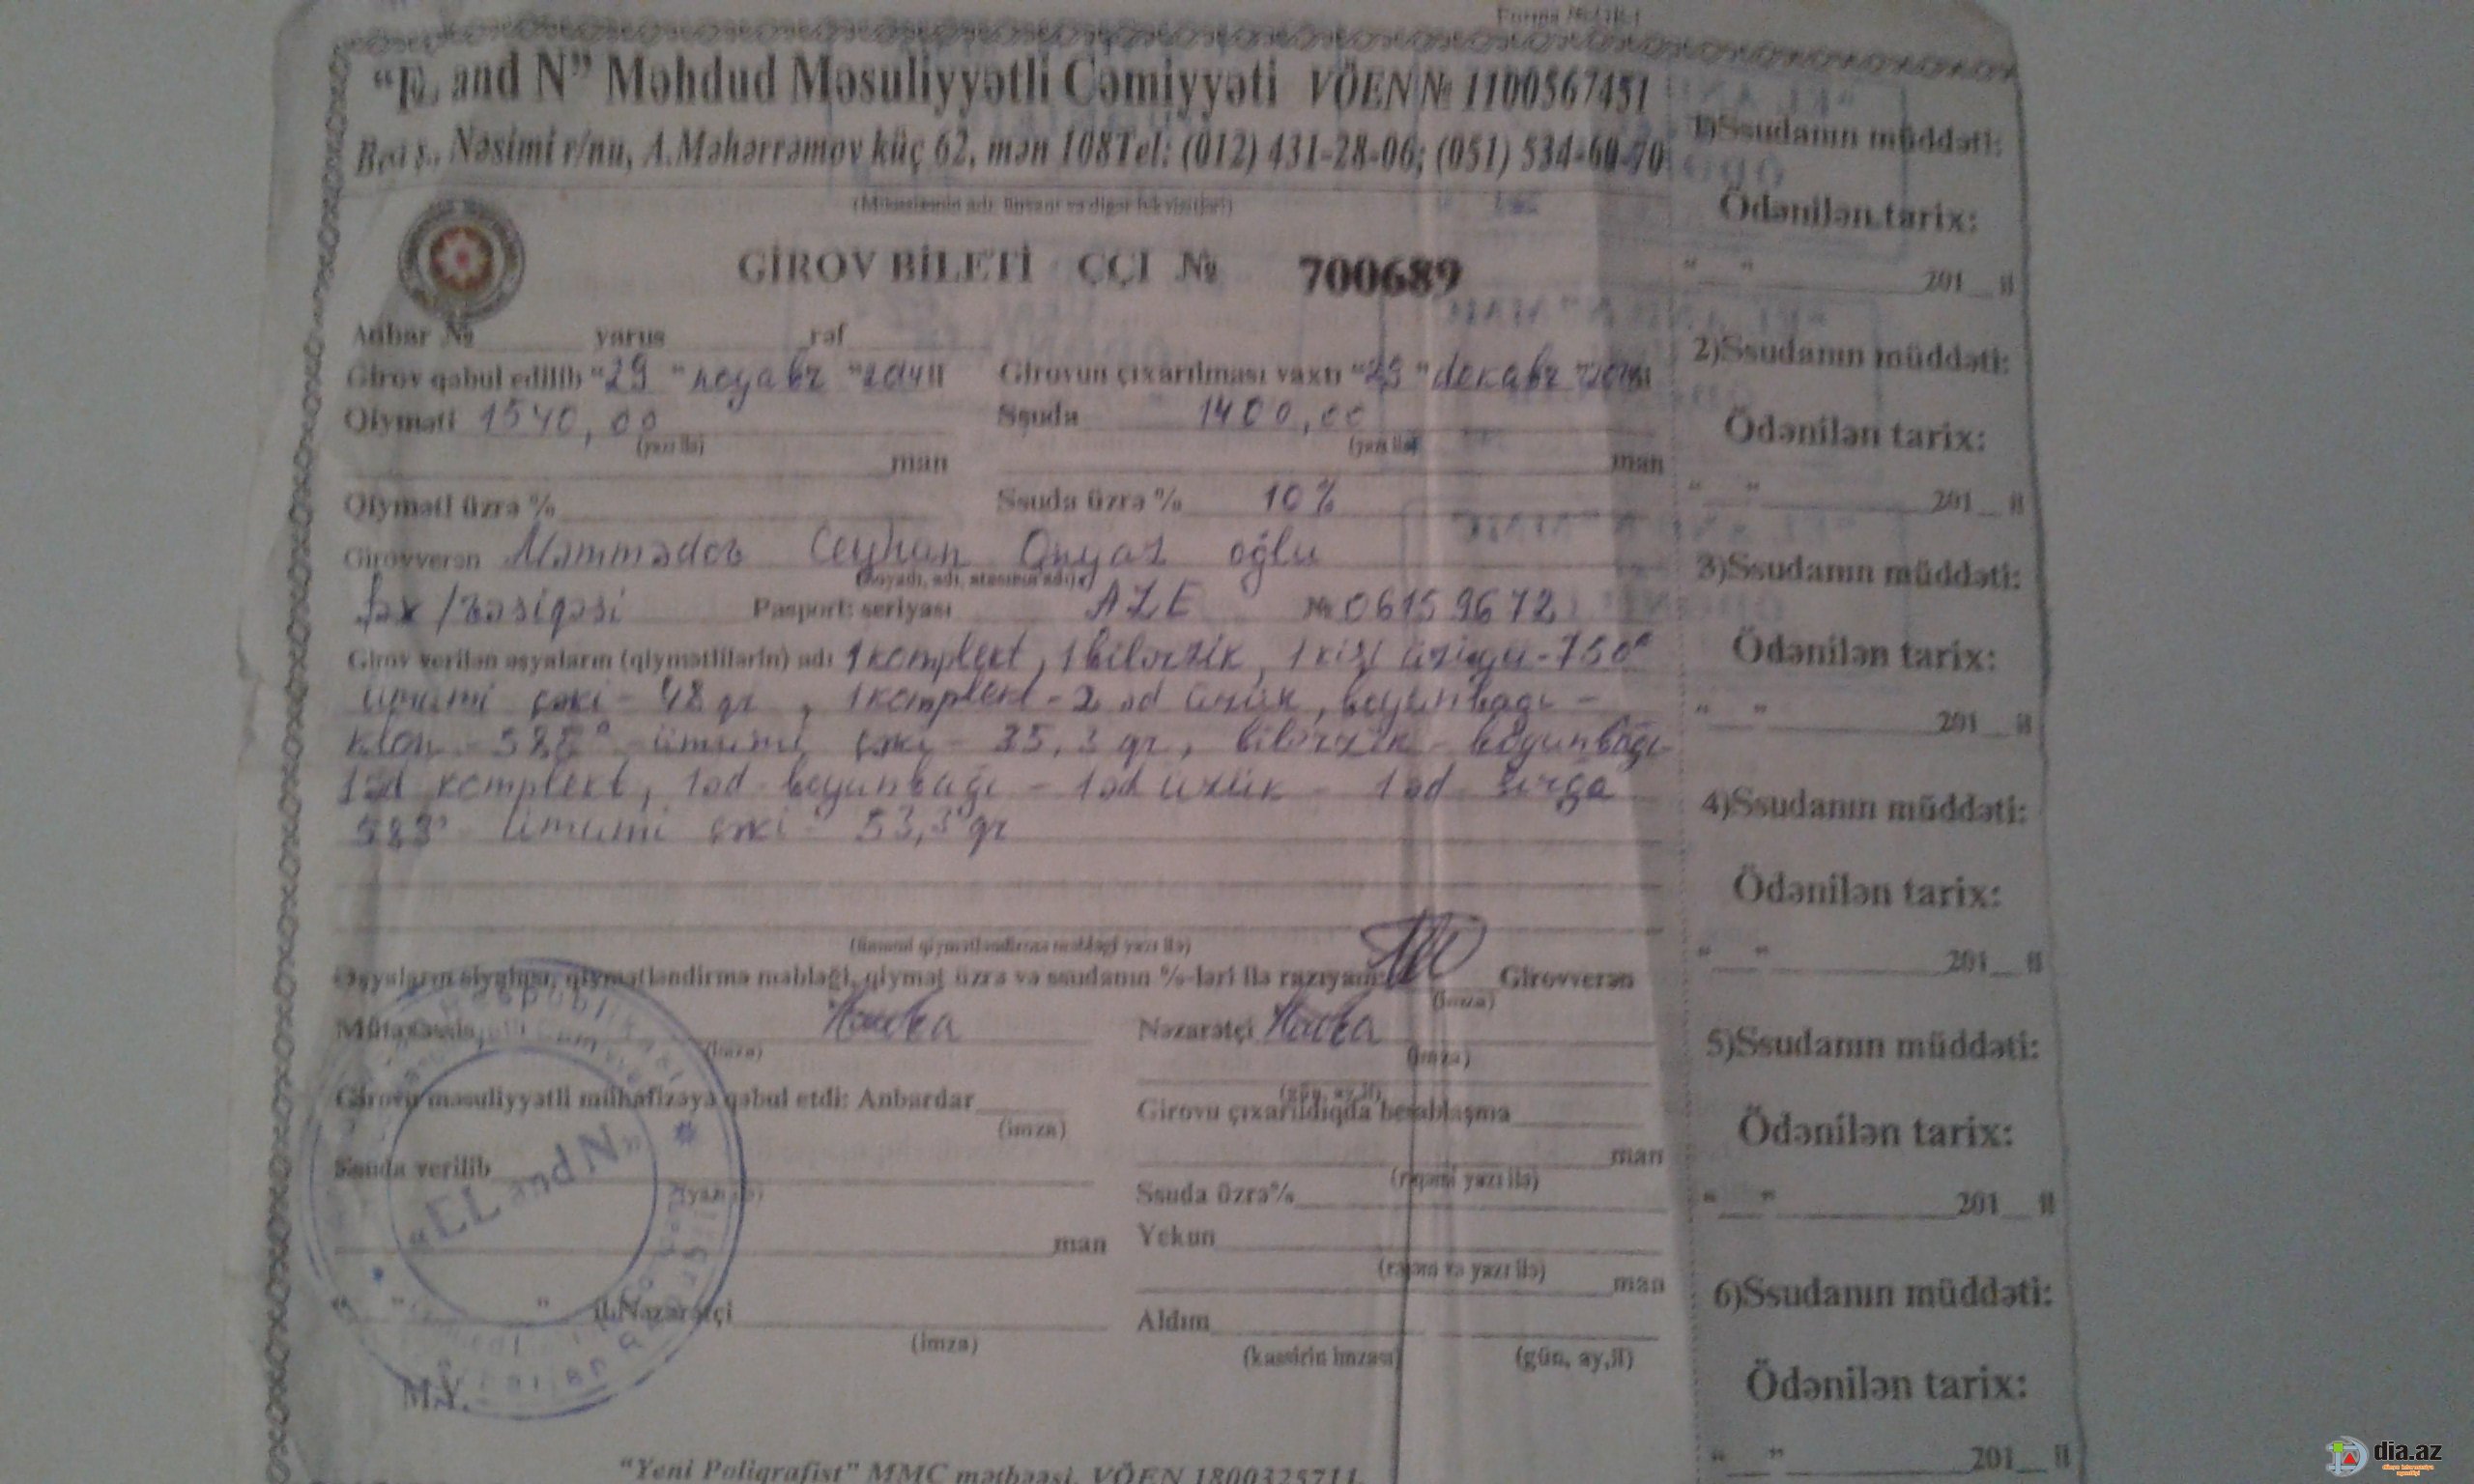 "EL and N" Məhdud Məsuliyyətli Cəmiyyəti VÖEN № 1100567451
Nəsimi r/nu, A.Məhərrəmov küç 62, mən 108 Tel: (012) 431-28-06; (051) 534-60-70
GİROV BİLETİ CÇI № 700689
Anbar № yarus rəf
Girov qəbul edilib "29" noyabr
Girovun çıxarılması vaxtı "29" dekabr
Qiyməti 1540,00
Ssuda 1400,00
(yazı ilə)
(yazı ilə)
man
man
Qiyməti üzrə %
Ssuda üzrə % 10%
Girovverən Məmmədov Ceyhun oğlu
(soyadı, adı, atasının adı)
şəx/vəsiqəsi Pasport: seriyası AZE № 06159672
Girov verilən əşyaların (qiymətlilərin) adı 1 komplekt, 1 bilərzik, 1 kişi üzüyü - 750°
ümumi çəki - 48 gr, 1 komplekt - 2 əd üzük, boyunbağı -
585° - ümumi çəki - 35,3 gr, bilərzik - boyunbağı -
1 əd komplekt, 1 əd boyunbağı - 1 əd üzük - 1 əd sırğa
ümumi çəki 53,3 gr
(ümumi qiymətləndirmə məbləği yazı ilə)
Əşyaların siyahısı, qiymətləndirmə məbləği, qiymət üzrə və ssudanın %-ləri ilə razıyam: Girovverən
(imza)
Mütəxəssis
Nəzarətçi
(imza)
(imza)
(gün, ay, il)
Girovu məsuliyyətli mühafizəyə qəbul etdi: Anbardar
Girovu çıxarıldıqda hesablaşma
(imza)
man
Ssuda verilib
(rəqəmi yazı ilə)
(yazı ilə)
Ssuda üzrə%
man
Yekun
(rəqəmi və yazı ilə)
man
" " il. Nəzarətçi
Aldım
(imza)
(kassirin imzası)
(gün, ay, il)
M.Y.
"EL and N"
"Yeni Poliqrafist" MMC mətbəəsi, VÖEN 1800325711
1)Ssudanın müddəti:
Ödənilən tarix:
"__" 201__ il
2)Ssudanın müddəti:
Ödənilən tarix:
"__" 201__ il
3)Ssudanın müddəti:
Ödənilən tarix:
"__" 201__ il
4)Ssudanın müddəti:
Ödənilən tarix:
"__" 201__ il
5)Ssudanın müddəti:
Ödənilən tarix:
"__" 201__ il
6)Ssudanın müddəti:
Ödənilən tarix:
"__" 201__ il
dia.az